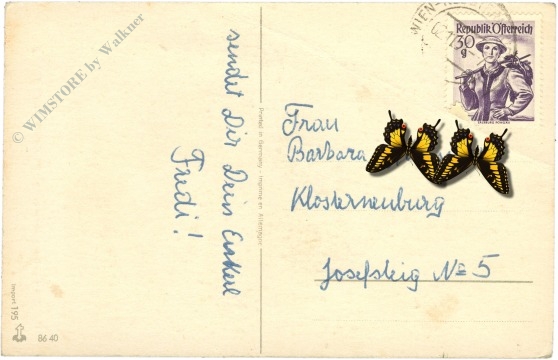 © WIMSTORE by Walkner
sendet Dir Dein Enkerl
Fredi!
Printed in Germany - Imprimé en Allemagne
Import 195
B6 40
WIEN
Republik Österreich
30
g
Frau
Barbara
Klosterneuburg
Josefsteig № 5